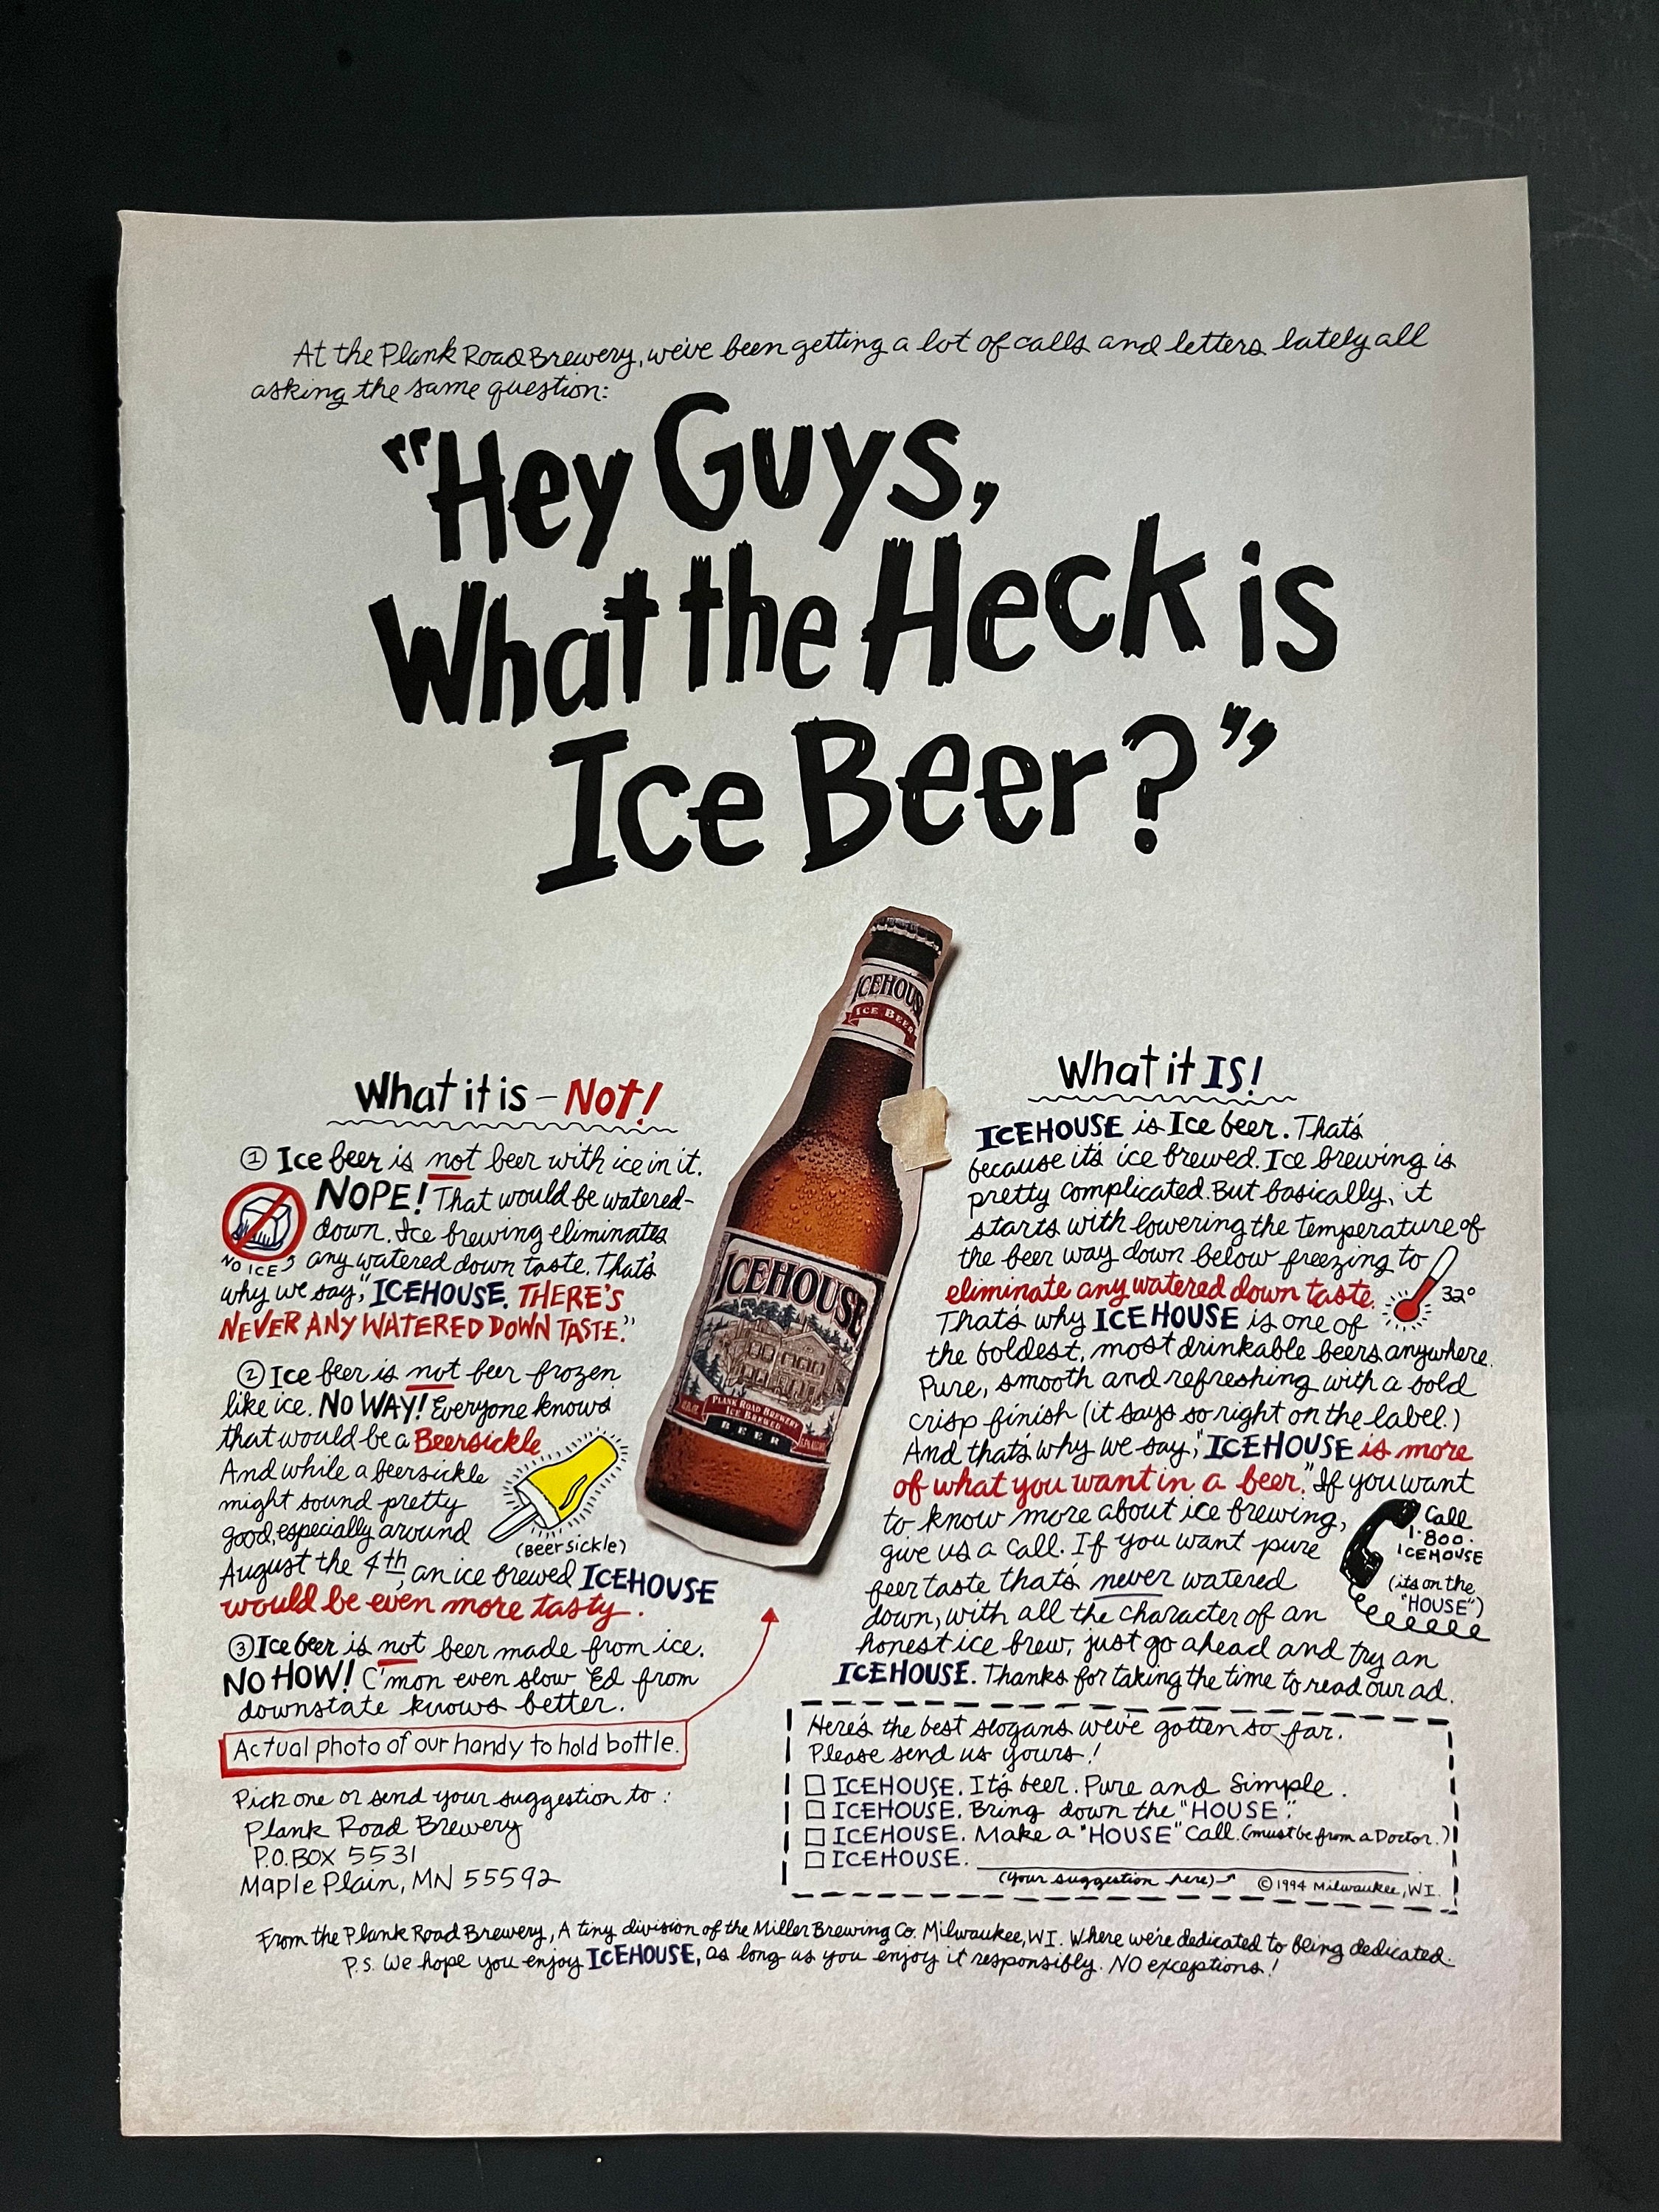 At the Plank Road Brewery, we've been getting a lot of calls and letters lately all
asking the same question:
"Hey Guys,
What the Heck is
Ice Beer?"
What it is – Not!
① Ice beer is not beer with ice in it.
NOPE! That would be watered-
down. Ice brewing eliminates
any watered down taste. That's
NO ICE
why we say, "ICEHOUSE. THERE'S
NEVER ANY WATERED DOWN TASTE."
② Ice beer is not beer frozen
like ice. NO WAY! Everyone knows
that would be a Beersickle
And while a beersickle
might sound pretty
good, especially around
(Beersickle)
August the 4th, an ice brewed ICEHOUSE
would be even more tasty.
③ Ice beer is not beer made from ice.
NO HOW! C'mon even slow Ed from
downstate knows better.
Actual photo of our handy to hold bottle.
Pick one or send your suggestion to:
Plank Road Brewery
P.O. BOX 5531
Maple Plain, MN 55592
ICEHOUSE
ICE BEER
ICEHOUSE
PLANK ROAD BREWERY
ICE BREWED
BEER
What it IS!
ICEHOUSE is Ice beer. That's
because it's ice brewed. Ice brewing is
pretty complicated. But basically, it
starts with lowering the temperature of
the beer way down below freezing to
eliminate any watered down taste.
32°
That's why ICEHOUSE is one of
the boldest, most drinkable beers anywhere.
Pure, smooth and refreshing with a bold
crisp finish (it says so right on the label.)
And that's why we say, "ICEHOUSE is more
of what you want in a beer." If you want
to know more about ice brewing,
give us a call. If you want pure
beer taste that's never watered
down, with all the character of an
honest ice brew, just go ahead and try an
ICEHOUSE. Thanks for taking the time to read our ad.
Call
1·800·
ICEHOUSE
(it's on the
"HOUSE")
Here's the best slogans we've gotten so far.
Please send us yours!
ICEHOUSE. It's beer. Pure and Simple.
ICEHOUSE. Bring down the "HOUSE".
ICEHOUSE. Make a "HOUSE" Call. (must be from a Doctor.)
ICEHOUSE.
(your suggestion here) © 1994 Milwaukee, WI.
From the Plank Road Brewery, A tiny division of the Miller Brewing Co. Milwaukee, WI. Where we're dedicated to being dedicated.
P.S. We hope you enjoy ICEHOUSE, as long as you enjoy it responsibly. NO exceptions!